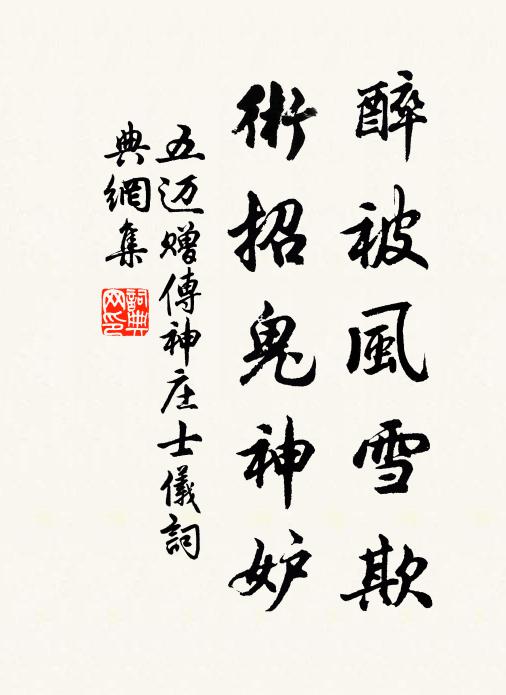 醉被風雪欺
術招鬼神妒
五迈赠傳神庄士儀詞
典網集
詞典网印